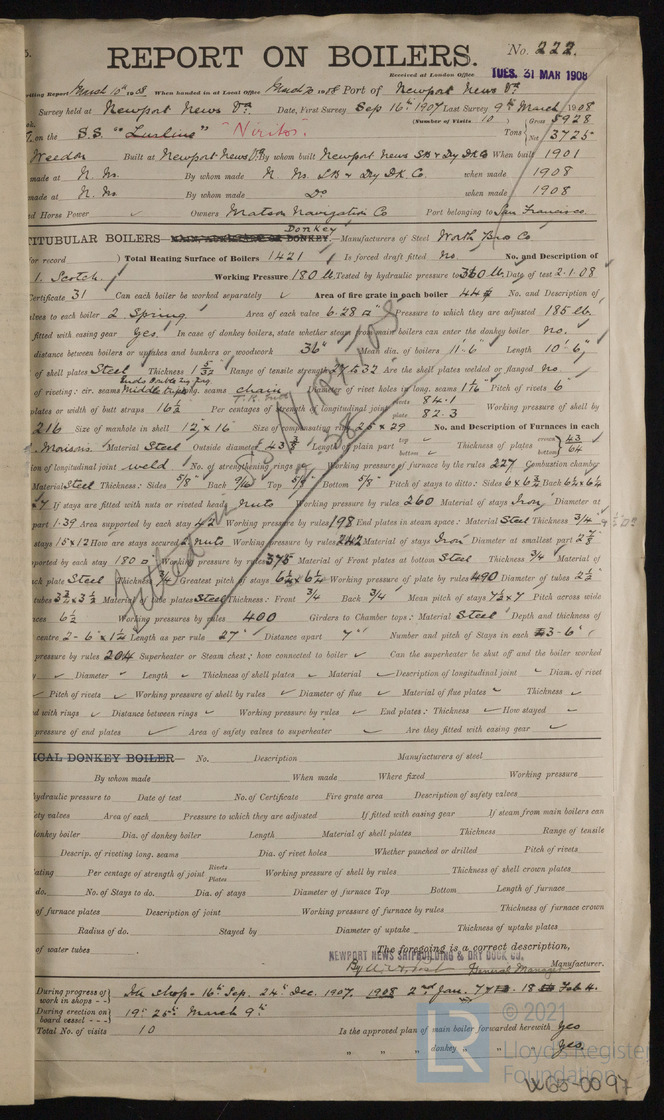 REPORT ON BOILERS.
No. 222.
Received at London Office TUES. 31 MAR 1908
riting Report March 10th 1908 When handed in at Local Office March 20 1908 Port of Newport News Va
Survey held at Newport News Va. Date, First Survey Sep 16th 1907 Last Survey 9th March 1908
(Number of Visits 10 ) Gross 5928
on the S.S. "Lurline" Tons Net 3725
Built at Newport News Va By whom built Newport News SB & Dry Dk Co When built 1901
made at N. Ns. By whom made N. Ns SB & Dry Dk. Co. when made 1908
made at N. Ns. By whom made Do when made 1908
d Horse Power Owners Matson Navigation Co Port belonging to San Francisco
ITUBULAR BOILERS MAIN, AUXILIARY OR DONKEY. Donkey —Manufacturers of Steel Worth Bros Co.
for record ) Total Heating Surface of Boilers 1421 Is forced draft fitted no. No. and Description of
1. Scotch. Working Pressure 180 lb. Tested by hydraulic pressure to 360 lb. Date of test 2-1-08
Certificate 31 Can each boiler be worked separately ✓ Area of fire grate in each boiler 44 No. and Description of
lves to each boiler 2 Spring Area of each valve 6.28 □" Pressure to which they are adjusted 185 lb.
fitted with easing gear Yes. In case of donkey boilers, state whether steam from main boilers can enter the donkey boiler no.
distance between boilers or uptakes and bunkers or woodwork 36" Mean dia. of boilers 11'-6" Length 10'-6"
of shell plates Steel Thickness 1 5/32 Range of tensile strength 27 & 32 Are the shell plates welded or flanged no.
of riveting: cir. seams long. seams chain Diameter of rivet holes in long. seams 1 1/16 Pitch of rivets 6"
plates or width of butt straps 16 1/2 Per centages of strength of longitudinal joint rivets 84.1 plate 82.3 Working pressure of shell by
216 Size of manhole in shell 12" x 16" Size of compensating ring 25 x 29 No. and Description of Furnaces in each
Morison Material Steel Outside diameter Length of plain part top ✓ bottom ✓ Thickness of plates crown 43 bottom 64
ion of longitudinal joint weld No. of strengthening rings Working pressure of furnace by the rules 227 Combustion chamber
Material Steel Thickness: Sides 5/8" Back 9/16 Top 5/8" Bottom 5/8" Pitch of stays to ditto: Sides 6 x 6 3/4 Back 6 1/2 x 6 1/4
If stays are fitted with nuts or riveted heads nuts Working pressure by rules 260 Material of stays Iron Diameter at
part 1.39 Area supported by each stay 42 Working pressure by rules 198 End plates in steam space: Material Steel Thickness 3/4
stays 15 x 12 How are stays secured 2 nuts Working pressure by rules 242 Material of stays Iron Diameter at smallest part
pported by each stay 180 □ Working pressure by rules 375 Material of Front plates at bottom Steel Thickness 3/4 Material of
ack plate Steel Thickness 3/4 Greatest pitch of stays 6 1/2 x 6 1/4 Working pressure of plate by rules 490 Diameter of tubes 2 1/2
tubes 3 3/4 x 3 1/2 Material of tube plates Steel Thickness: Front 3/4 Back 3/4 Mean pitch of stays 7 1/2 x 7 Pitch across wide
ces 6 1/2 Working pressures by rules 400 Girders to Chamber tops: Material Steel Depth and thickness of
centre 2-6 x 1 1/2 Length as per rule 27" Distance apart 7" Number and pitch of Stays in each 3-6"
pressure by rules 204 Superheater or Steam chest; how connected to boiler ✓ Can the superheater be shut off and the boiler worked
y ✓ Diameter ✓ Length ✓ Thickness of shell plates ✓ Material ✓ Description of longitudinal joint ✓ Diam. of rivet
✓ Pitch of rivets ✓ Working pressure of shell by rules ✓ Diameter of flue ✓ Material of flue plates ✓ Thickness ✓
d with rings ✓ Distance between rings ✓ Working pressure by rules ✓ End plates: Thickness ✓ How stayed ✓
pressure of end plates ✓ Area of safety valves to superheater ✓ Are they fitted with easing gear ✓
ICAL DONKEY BOILER— No. Description Manufacturers of steel
By whom made When made Where fixed Working pressure
hydraulic pressure to Date of test No. of Certificate Fire grate area Description of safety valves
fety valves Area of each Pressure to which they are adjusted If fitted with easing gear If steam from main boilers can
donkey boiler Dia. of donkey boiler Length Material of shell plates Thickness Range of tensile
Descrip. of riveting long. seams Dia. of rivet holes Whether punched or drilled Pitch of rivets
lating Per centage of strength of joint Rivets Plates Working pressure of shell by rules Thickness of shell crown plates
do. No. of Stays to do. Dia. of stays Diameter of furnace Top Bottom Length of furnace
of furnace plates Description of joint Working pressure of furnace by rules Thickness of furnace crown
Radius of do. Stayed by Diameter of uptake Thickness of uptake plates
of water tubes
The foregoing is a correct description,
NEWPORT NEWS SHIPBUILDING & DRY DOCK CO.
By General Manager Manufacturer.
During progress of work in shops - - In Shop - 16th Sep. 24th Dec. 1907. 1908 2nd Jan. 18 Feb 4.
During erection on board vessel - - - 19th 25th March 9th
Total No. of visits 10 Is the approved plan of main boiler forwarded herewith Yes
" " " donkey " " " Yes.
© 2021
LR
Lloyd's Register
Foundation
W65-0097